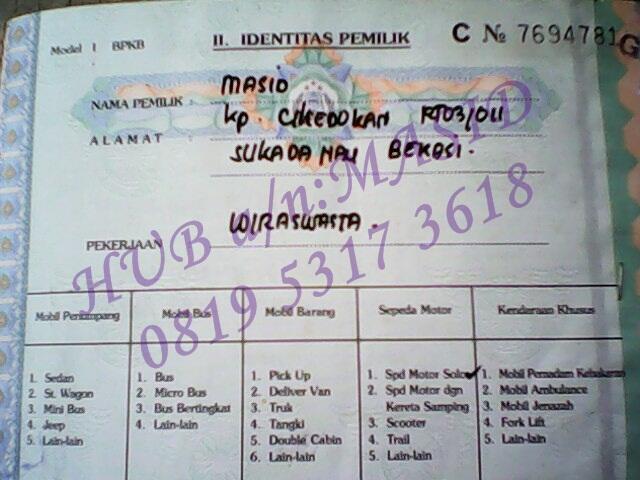 Model 1 BPKB
II. IDENTITAS PEMILIK
C № 7694781 G
NAMA PEMILIK : MASID
ALAMAT : Kp. CIKEDOKAN RT03/011
SUKADANAU BEKASI.
PEKERJAAN WIRASWASTA.
HUB a/n:MASID
0819 5317 3618
Mobil Penumpang
1. Sedan
2. St. Wagon
3. Mini Bus
4. Jeep
5. Lain-lain
Mobil Bus
1. Bus
2. Micro Bus
3. Bus Bertingkat
4. Lain-lain
Mobil Barang
1. Pick Up
2. Deliver Van
3. Truk
4. Tangki
5. Double Cabin
6. Lain-lain
Sepeda Motor
1. Spd Motor Solo ✓
2. Spd Motor dgn
Kereta Samping
3. Scooter
4. Trail
5. Lain-lain
Kenderaan Khusus
1. Mobil Pemadam Kebakaran
2. Mobil Ambulance
3. Mobil Jenazah
4. Fork Lift
5. Lain-lain